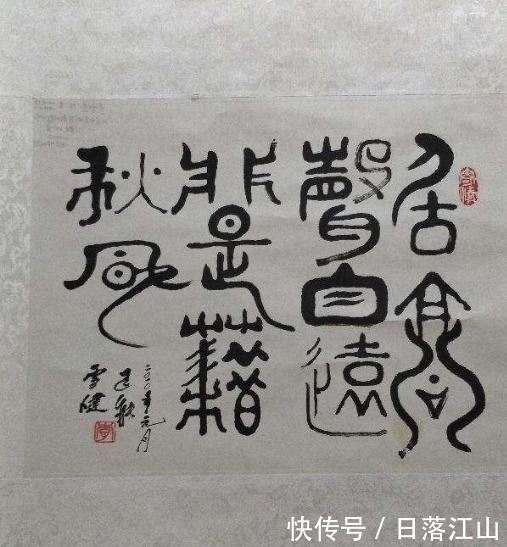 居高
聲自遠
非是藉
秋風
元月
雪健
快传号 / 日落江山